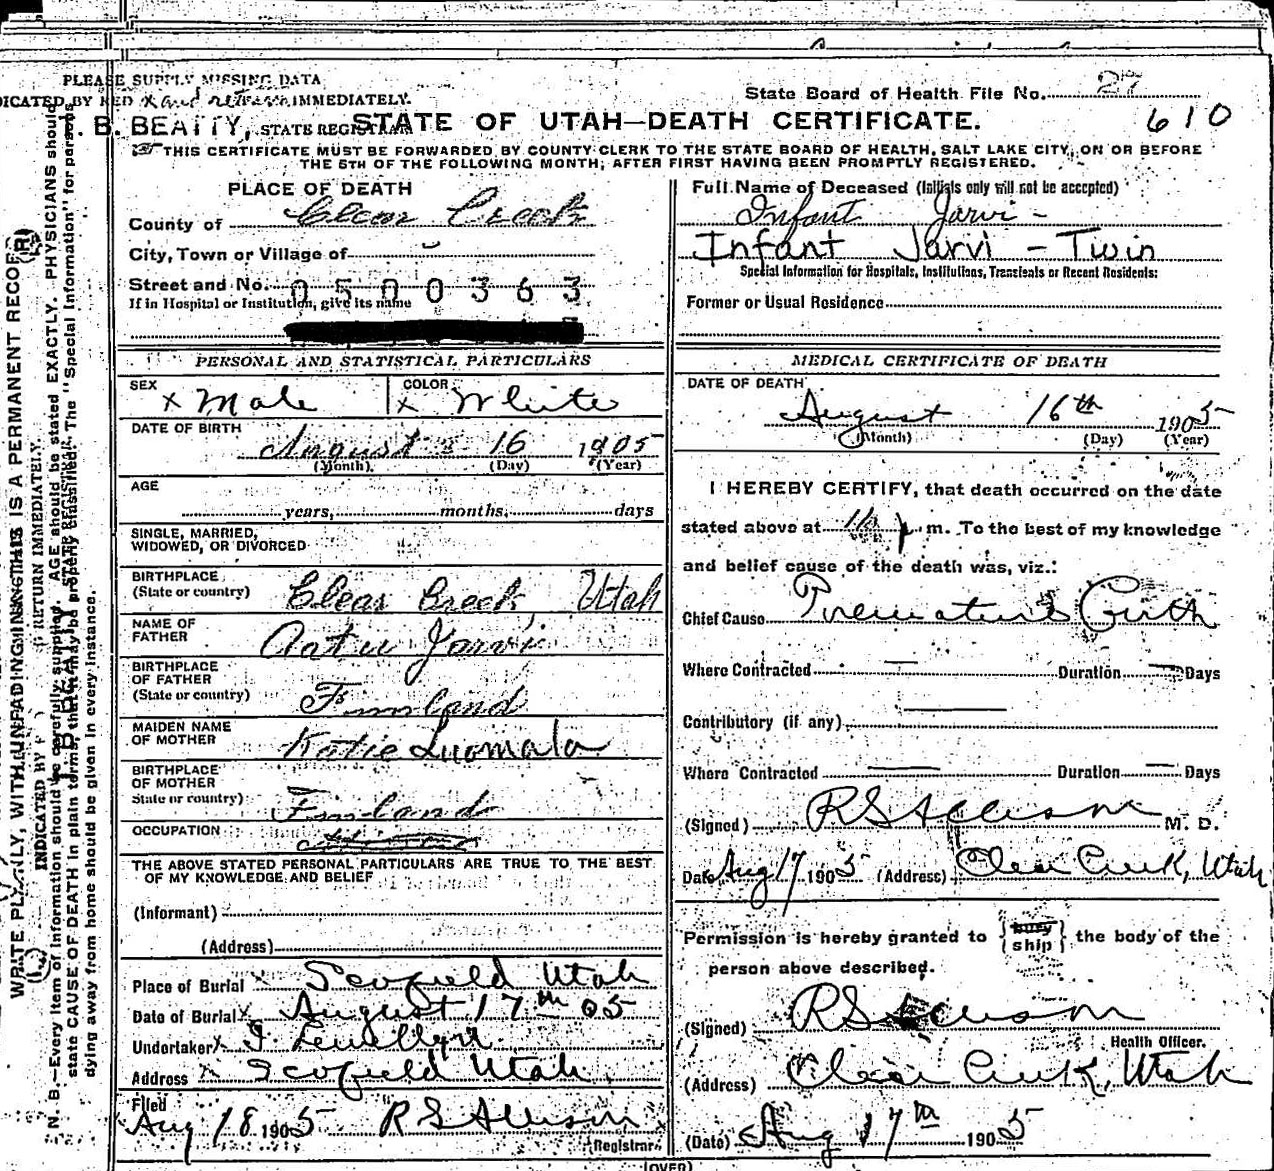 PLEASE SUPPLY MISSING DATA
INDICATED BY RED x and return IMMEDIATELY.
B. BEATTY, STATE REGISTRAR
State Board of Health File No. 27
610
STATE OF UTAH—DEATH CERTIFICATE.
THIS CERTIFICATE MUST BE FORWARDED BY COUNTY CLERK TO THE STATE BOARD OF HEALTH, SALT LAKE CITY, ON OR BEFORE
THE 5TH OF THE FOLLOWING MONTH, AFTER FIRST HAVING BEEN PROMPTLY REGISTERED.
PLACE OF DEATH
County of Clear Creek
City, Town or Village of
Street and No. 0500363
If in Hospital or Institution, give its name
Full Name of Deceased (Initials only will not be accepted)
Infant Jarvi -
Infant Jarvi - Twin
Special Information for Hospitals, Institutions, Transients or Recent Residents:
Former or Usual Residence
PERSONAL AND STATISTICAL PARTICULARS
SEX x Male
COLOR x White
DATE OF BIRTH
August 16 1905
(Month) (Day) (Year)
AGE
years, months, days
SINGLE, MARRIED,
WIDOWED, OR DIVORCED
BIRTHPLACE
(State or country) Clear Creek Utah
NAME OF
FATHER Jarvi
BIRTHPLACE
OF FATHER
(State or country) Finland
MAIDEN NAME
OF MOTHER Katie Luomala
BIRTHPLACE
OF MOTHER
State or country) Finland
OCCUPATION
THE ABOVE STATED PERSONAL PARTICULARS ARE TRUE TO THE BEST
OF MY KNOWLEDGE AND BELIEF
(Informant)
(Address)
Place of Burial x Scofield Utah
Date of Burial x August 17th 05
Undertaker x
Address x Scofield Utah
Filed
Aug 18 1905 R S Allison
Registrar
MEDICAL CERTIFICATE OF DEATH
DATE OF DEATH
August 16th 1905
(Month) (Day) (Year)
I HEREBY CERTIFY, that death occurred on the date
stated above at 11 p m. To the best of my knowledge
and belief cause of the death was, viz.:
Chief Cause Premature Birth
Where Contracted — Duration — Days
Contributory (if any) —
Where Contracted — Duration — Days
(Signed) R S Allison M. D.
Date Aug 17 1905 (Address) Clear Creek, Utah
Permission is hereby granted to { bury ship } the body of the
person above described.
(Signed) R S Allison
Health Officer.
(Address) Clear Creek, Utah
(Date) Aug 17th 1905
(OVER)
WRITE PLAINLY, WITH UNFADING INK—THIS IS A PERMANENT RECORD
INDICATED BY RETURN IMMEDIATELY.
N. B.—Every item of information should be carefully supplied. AGE should be stated EXACTLY. PHYSICIANS should
state CAUSE OF DEATH in plain terms, that it may be properly classified. The "Special Information" for persons
dying away from home should be given in every instance.